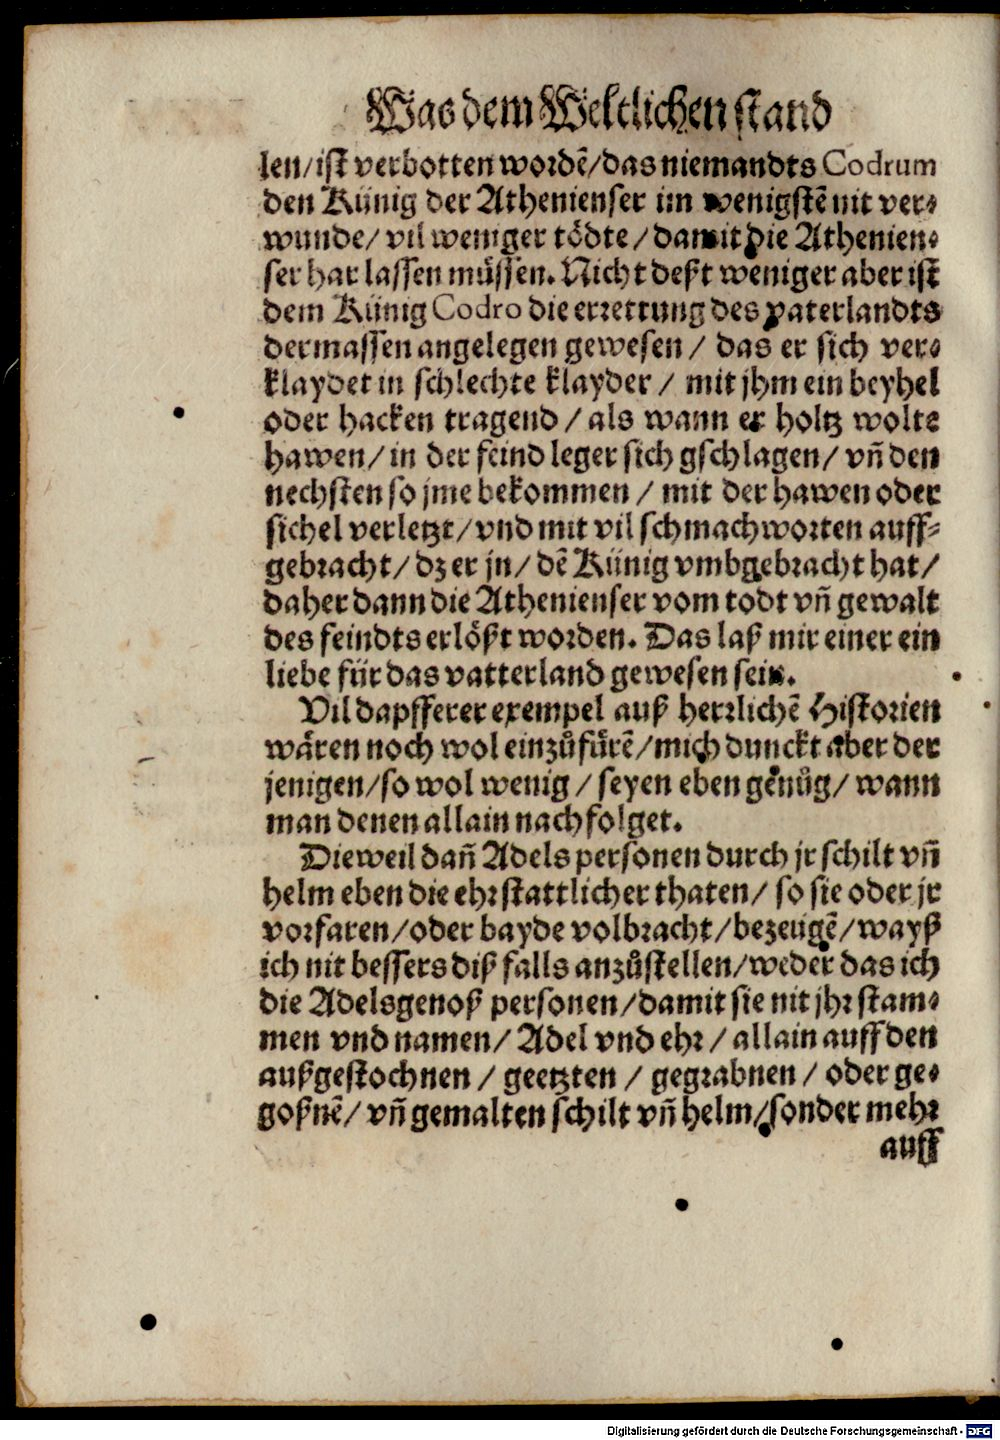 Was dem Weltlichen stand
len/ist verbotten wordē/das niemandts Codrum
den Künig der Athenienser im wenigstē nit ver⸗
wunde/ vil weniger tödte/ damit die Athenien⸗
ser har lassen müssen. Nicht deßt weniger aber ist
dem Künig Codro die errettung des vaterlandts
dermassen angelegen gewesen/ das er sich ver⸗
klaydet in schlechte klayder/ mit jhm ein beyhel
oder hacken tragend/ als wann er holtz wolte
hawen/ in der feind leger sich gschlagen/ vñ den
nechsten so jme bekommen/ mit der hawen oder
sichel verletzt/ vnd mit vil schmachworten auff⸗
gebracht/ dz er jn/ dē Künig vmbgebracht hat/
daher dann die Athenienser vom todt vñ gewalt
des feindts erlößt worden. Das laß mir einer ein
liebe für das vatterland gewesen sein.
Vil dapfferer exempel auß herrlichē Historien
wären noch wol einzůfürē/ mich dunckt aber der
jenigen/ so wol wenig/ seyen eben genůg/ wann
man denen allain nachfolget.
Dieweil dañ Adels personen durch jr schilt vñ
helm eben die ehr stattlicher thaten/ so sie oder jr
vorfaren/ oder bayde volbracht/ bezeugē/ wayß
ich nit bessers diß falls anzůstellen/ weder das ich
die Adelsgenoß personen/ damit sie nit jhr stam⸗
men vnd namen/ Adel vnd ehr/ allain auff den
außgestochnen/ geetzten/ gegrabnen/ oder ge⸗
goßnē/ vñ gemalten schilt vñ helm/ sonder mehr
auff
Digitalisierung gefördert durch die Deutsche Forschungsgemeinschaft - DFG